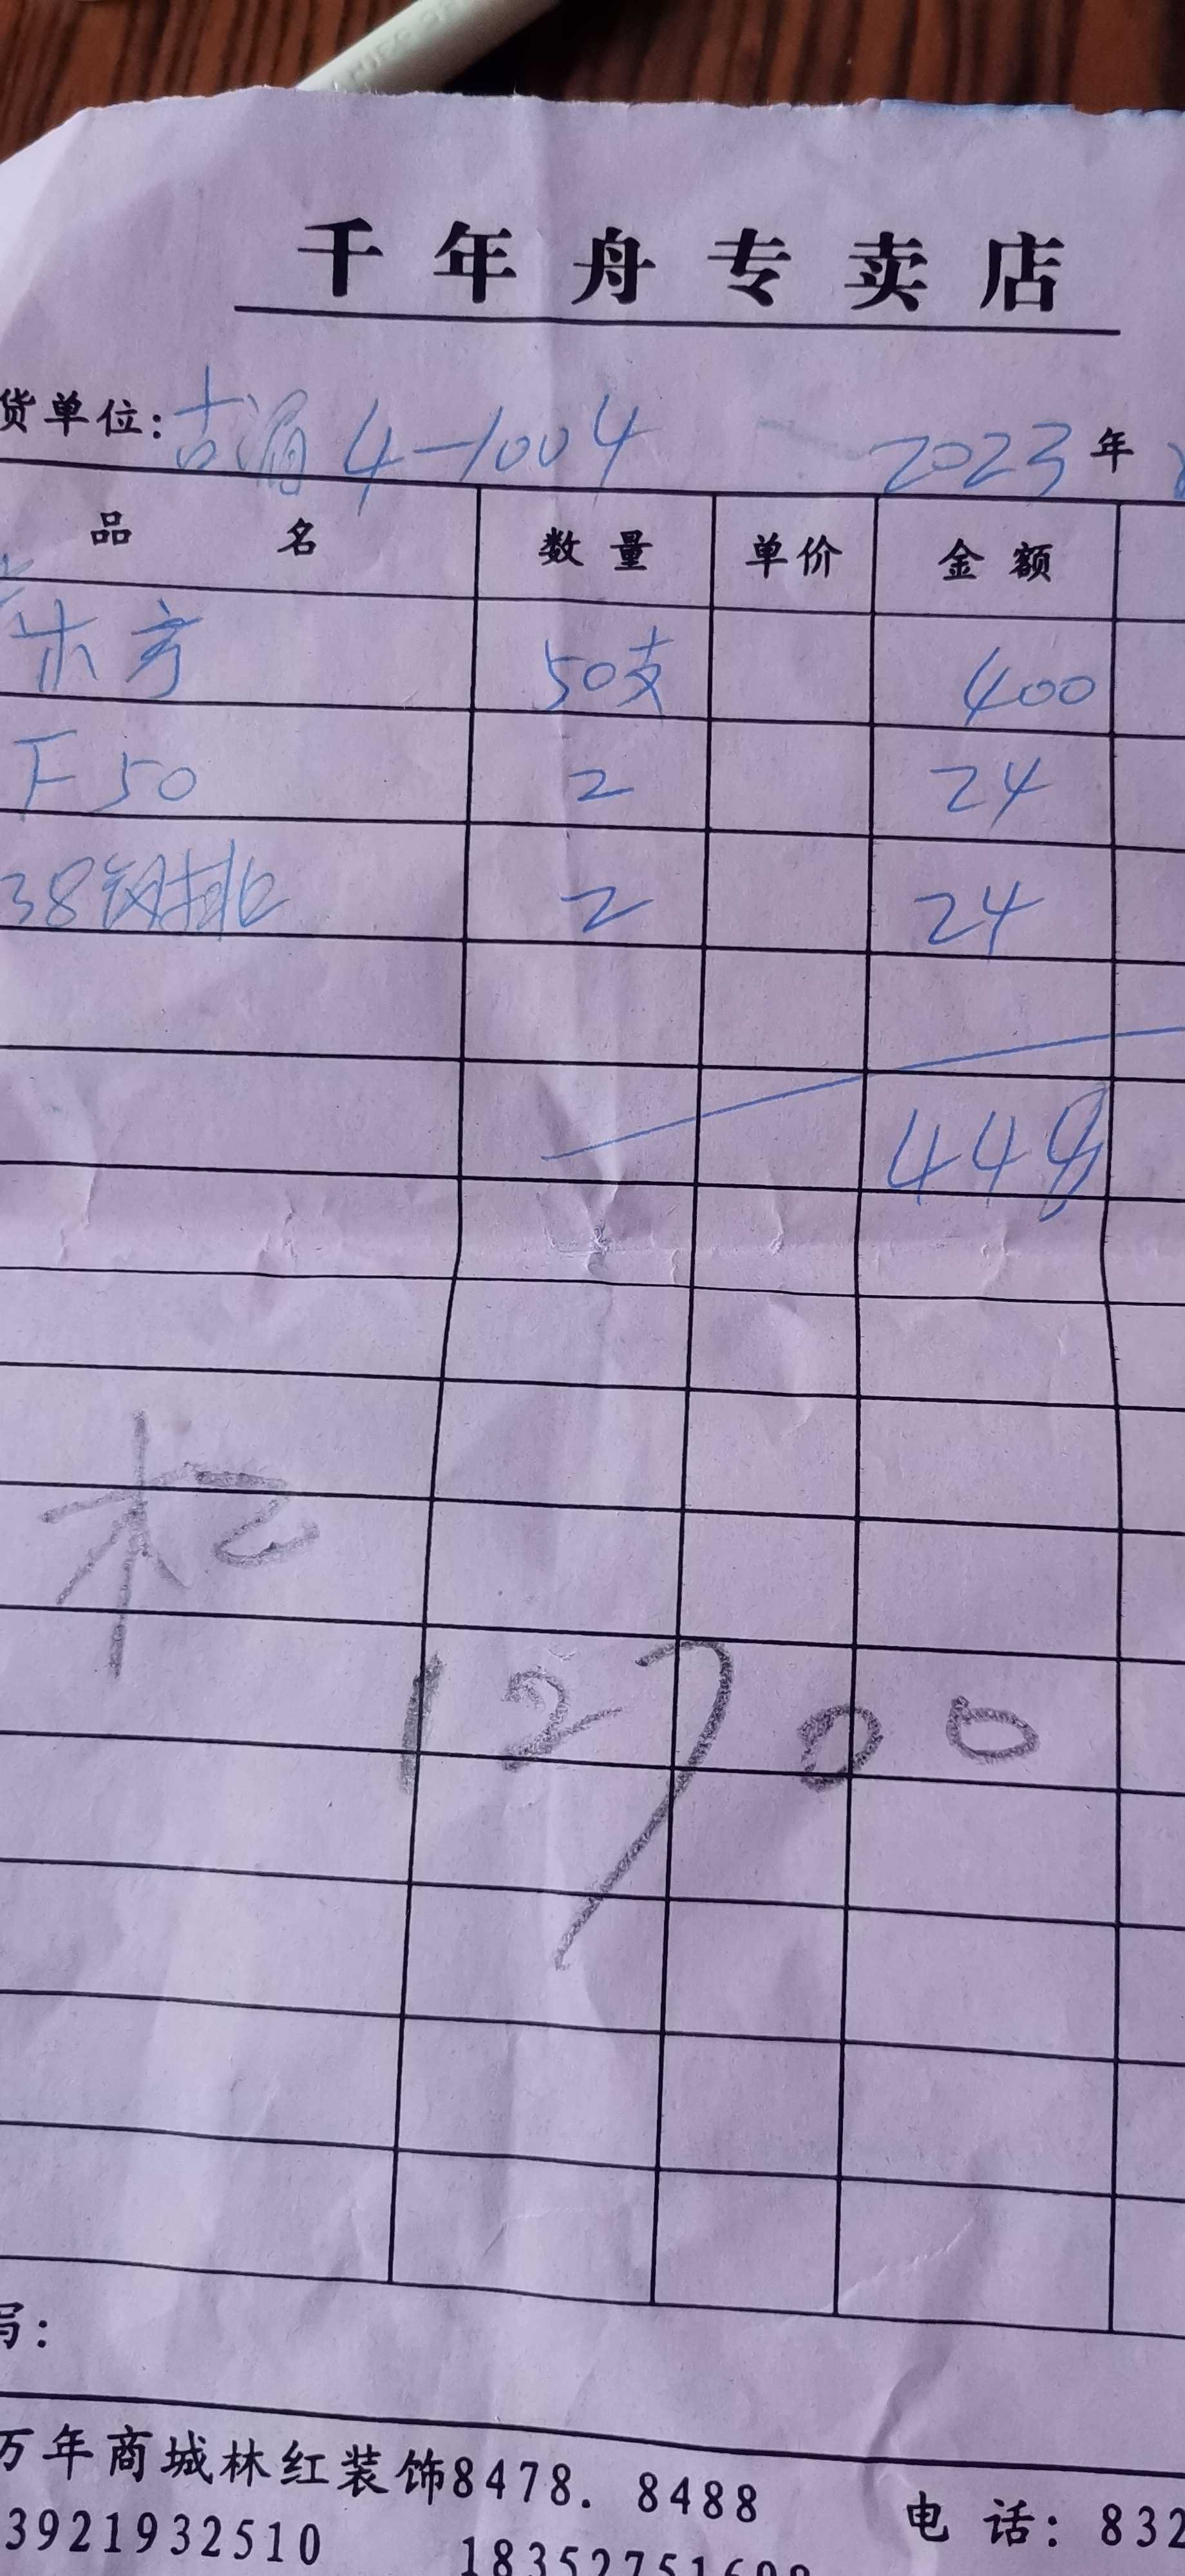 千年舟专卖店
货单位: 4-1004 2023年
品名 数量 单价 金额
木方 50支 400
F50 2 24
38钢排 2 24
448
12700
写:
万年商城林红装饰8478. 8488 电话: 832
3921932510